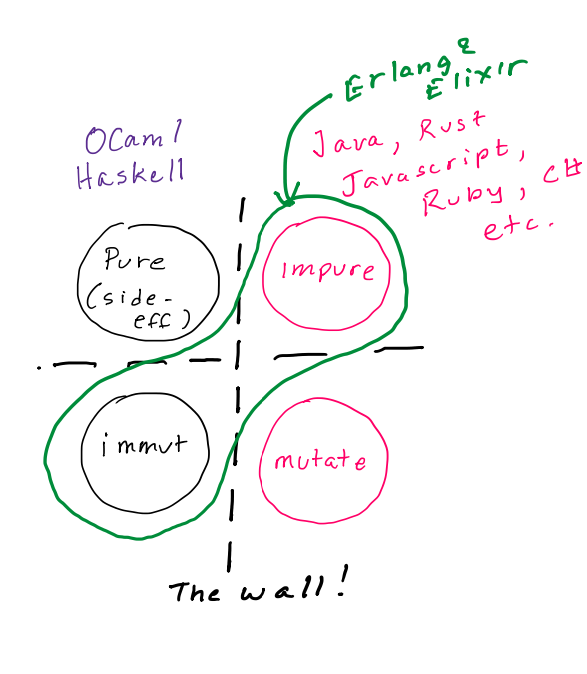 Erlang &
Elixir
OCaml
Haskell
Java, Rust
Javascript,
Ruby, C#
etc.
Pure
(side-
eff)
impure
immut
mutate
The wall!